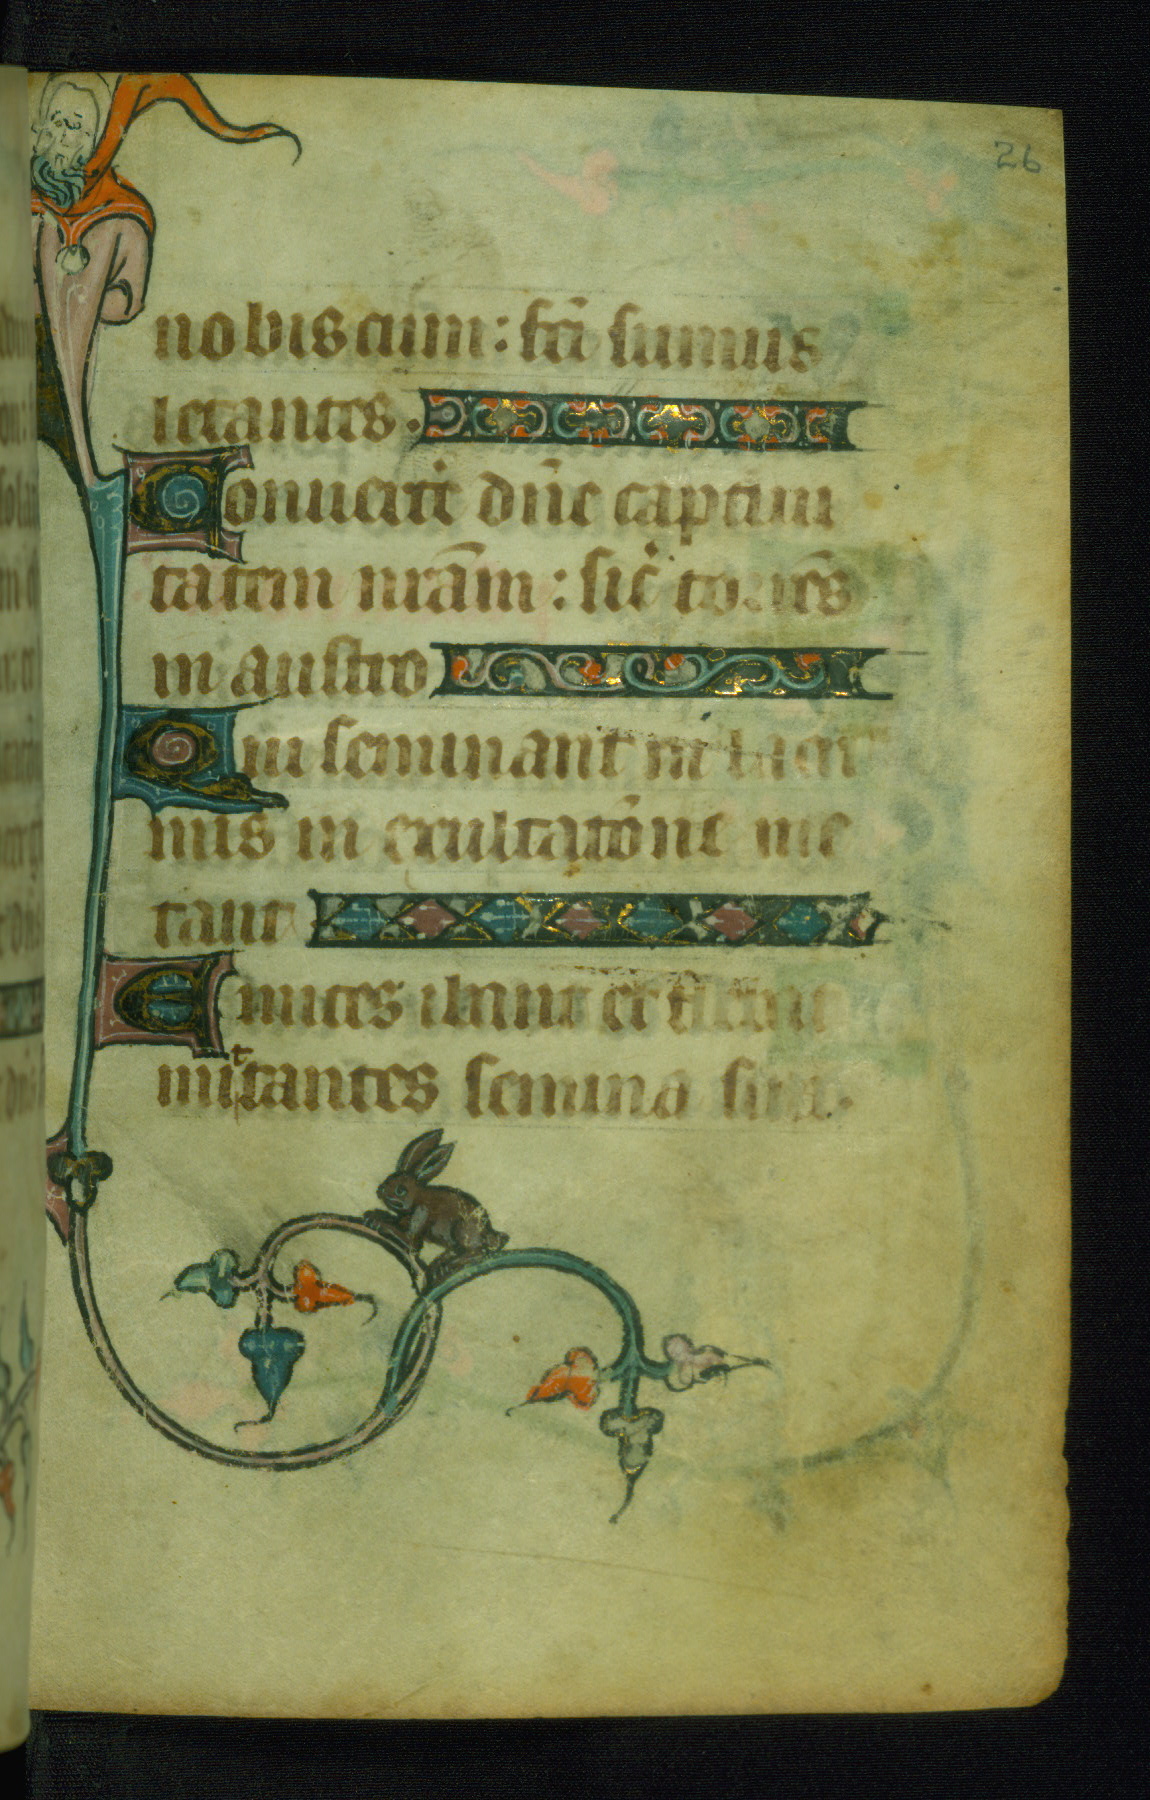 26
nobiscum: fcī sumus
letantes.
Conuerte dn̄e captiui
tatem nrām: sic̄ torrēs
in austro
Qui seminant in lacri
mis in exultatōne me
tant
Euntes ibant et flebāt
mittantes semina sua.